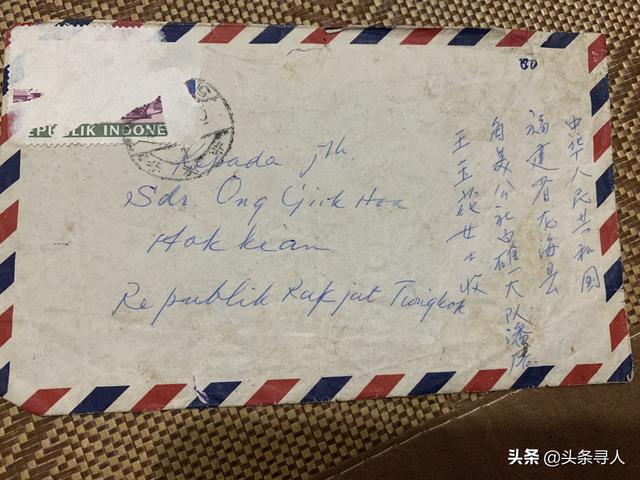 80
EPUBLIK INDONE
Kepada jth
Sdr Ong Giok Hoa
Hokkian
Republik Rakjat Tiongkok
中华人民共和国
福建省龙海县
角美公社白礁大队潘厝
王玉花女士收
头条 @头条寻人